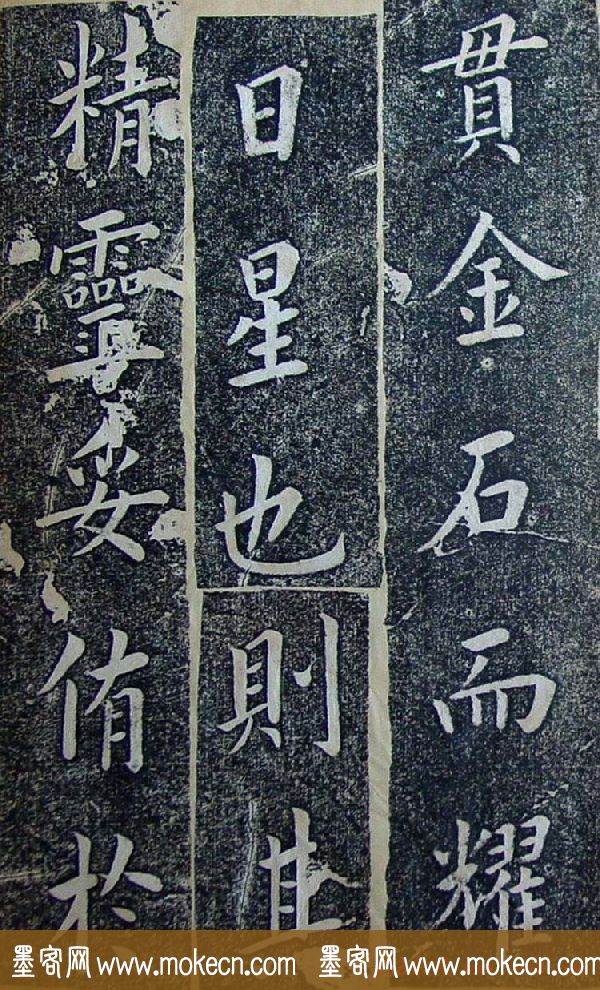 貫金石而耀
日星也則其
精靈妥侑於
墨客网 www.mokecn.com 墨客网 www.mokecn.com